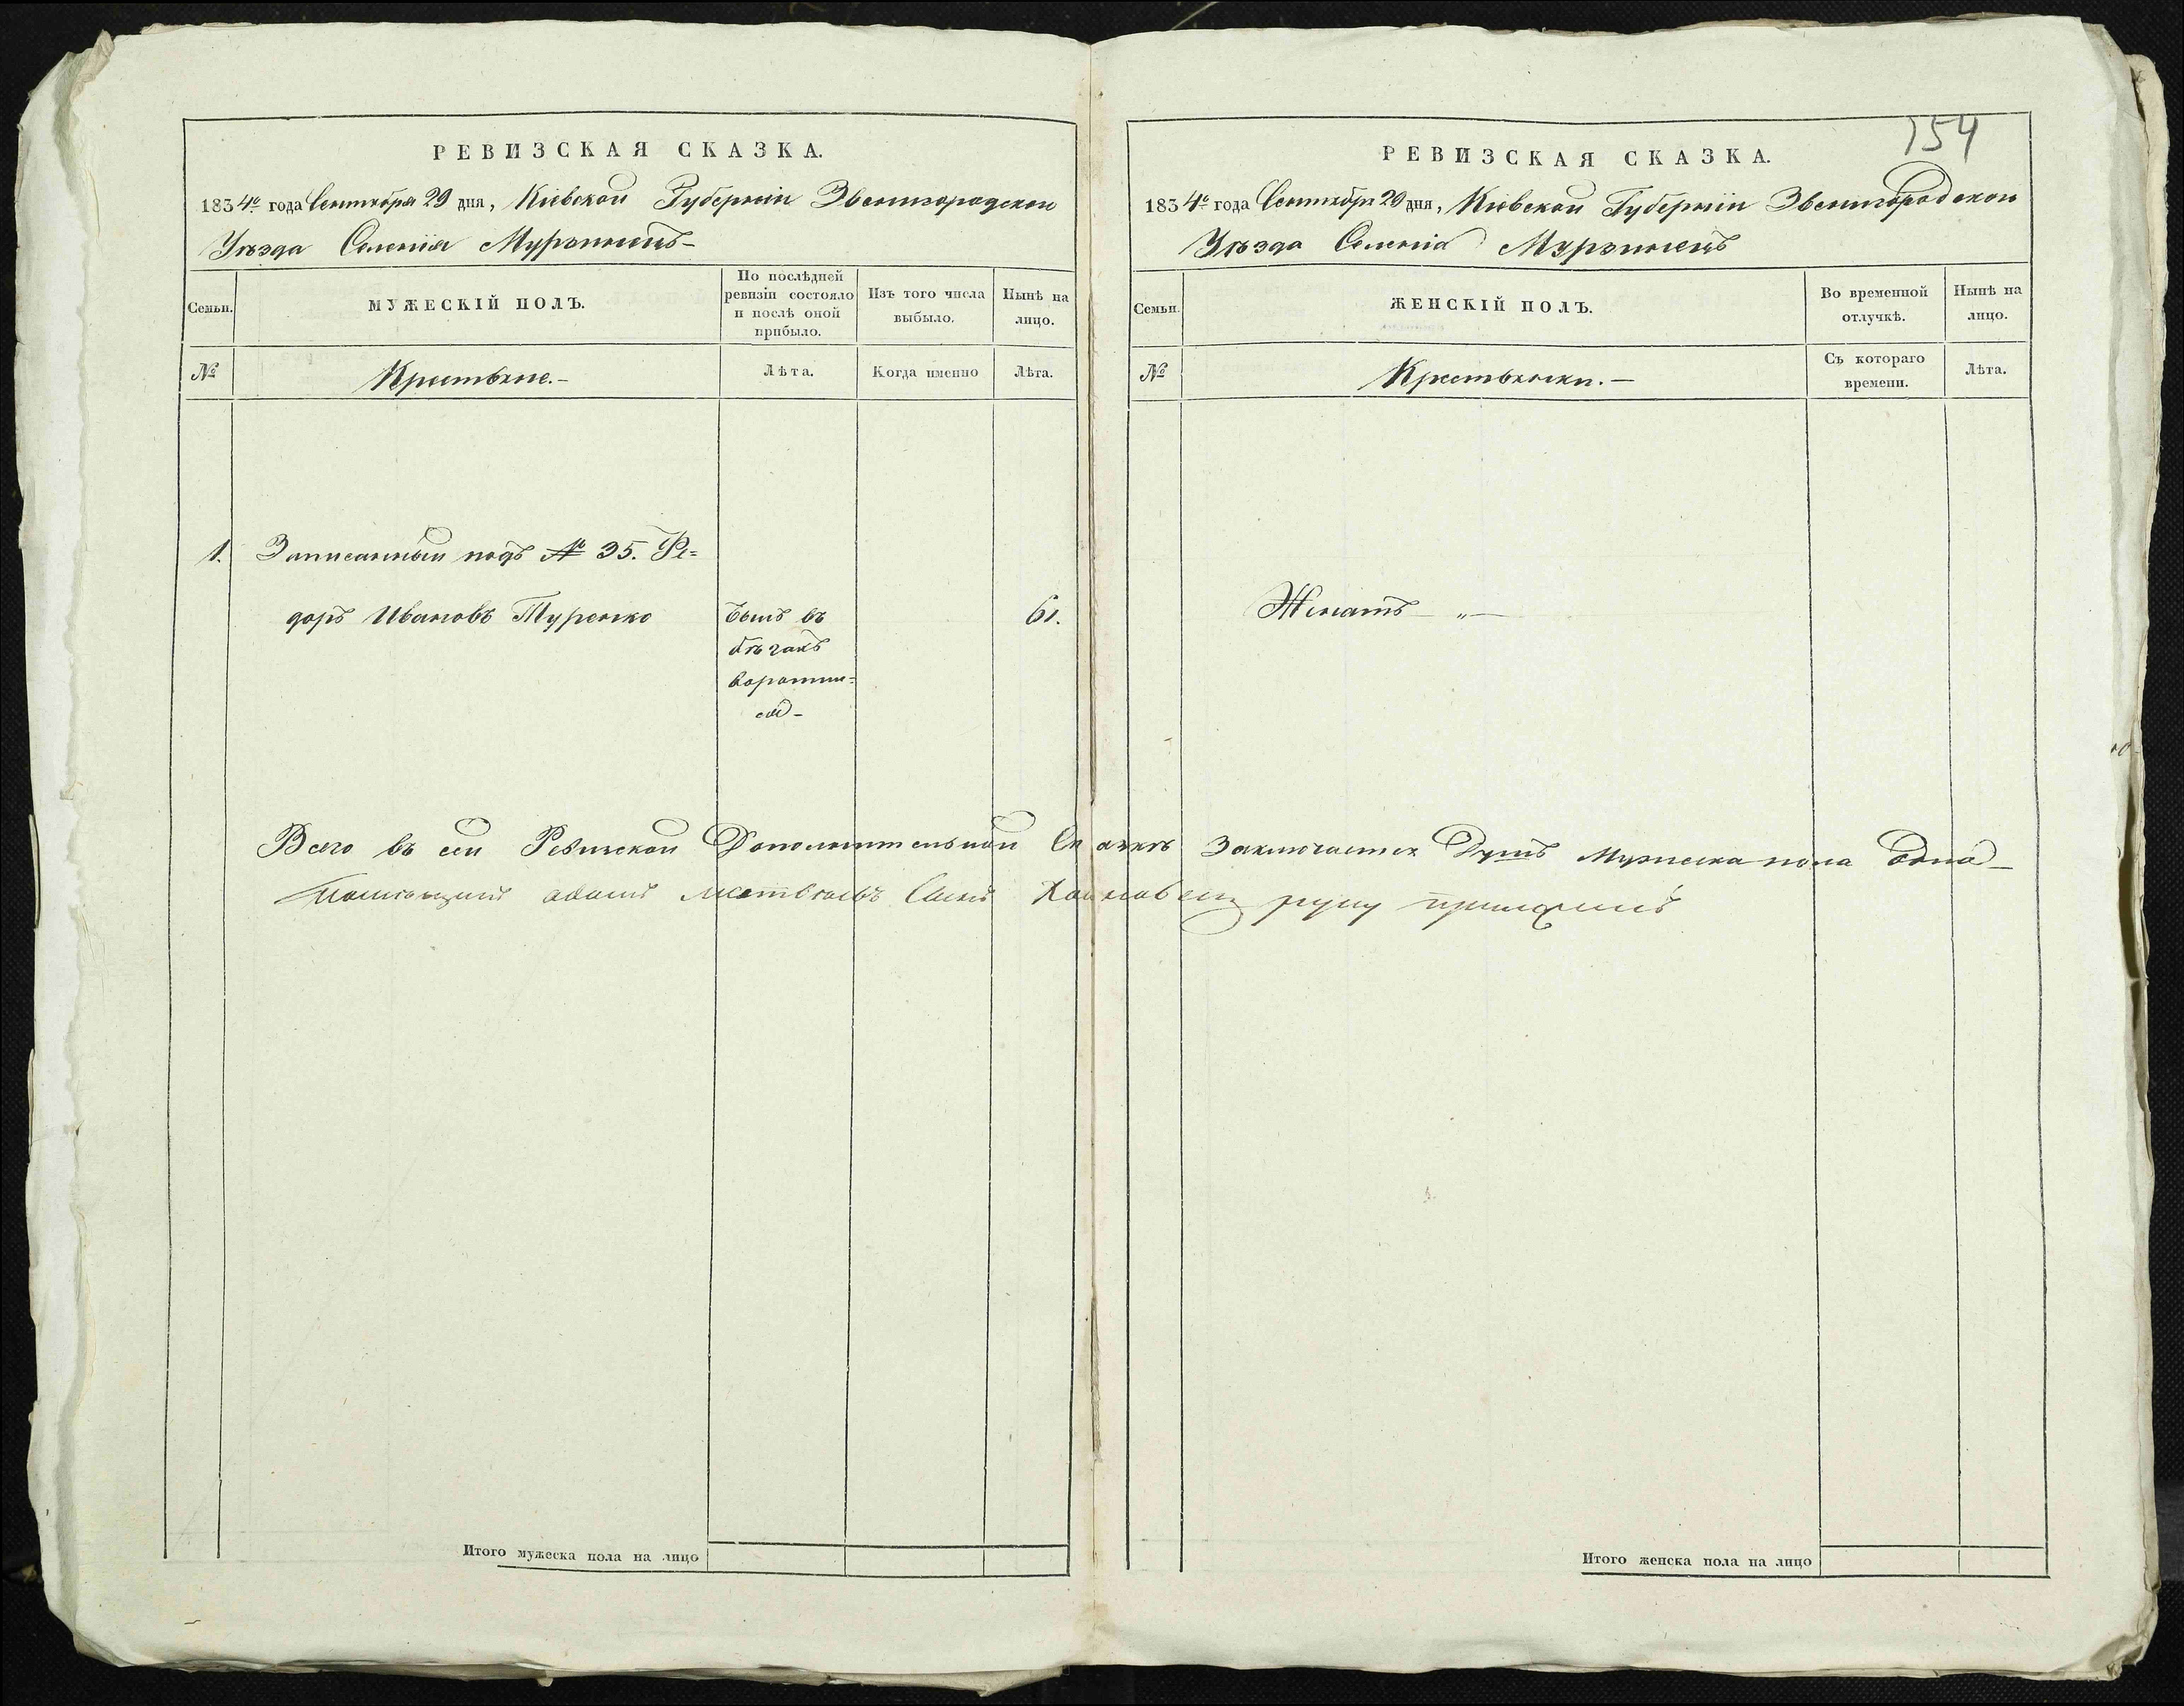 РЕВИЗСКАЯ СКАЗКА.
1834го года Сентября 29 дня, Кіевской Губерніи Звенигородского
Уѣзда Селенія Мурзинецъ
Семьи.
МУЖЕСКІЙ ПОЛЪ.
По послѣдней ревизіи состояло и послѣ оной прибыло.
Изъ того числа выбыло.
Нынѣ на лицо.
№
Крестьяне.-
Лѣта.
Когда именно
Лѣта.
1. Записанный подъ № 35. Ѳе=
доръ Ивановъ Туренко
былъ въ
бѣгахъ
воротил=
ся-
61.
Всего въ сей Ревизской Дополнительной Сказкѣ Заключается Душъ Мужеска пола Одна
руку приложилъ
Итого мужеска пола на лицо
154
РЕВИЗСКАЯ СКАЗКА.
1834го года Сентября 29 дня, Кіевской Губерніи Звенигородского
Уѣзда Селенія Мурзинецъ
Семьи.
ЖЕНСКІЙ ПОЛЪ.
Во временной отлучкѣ.
Нынѣ на лицо.
№
Крестьянки.-
Съ котораго времени.
Лѣта.
Женатъ
Итого женска пола на лицо